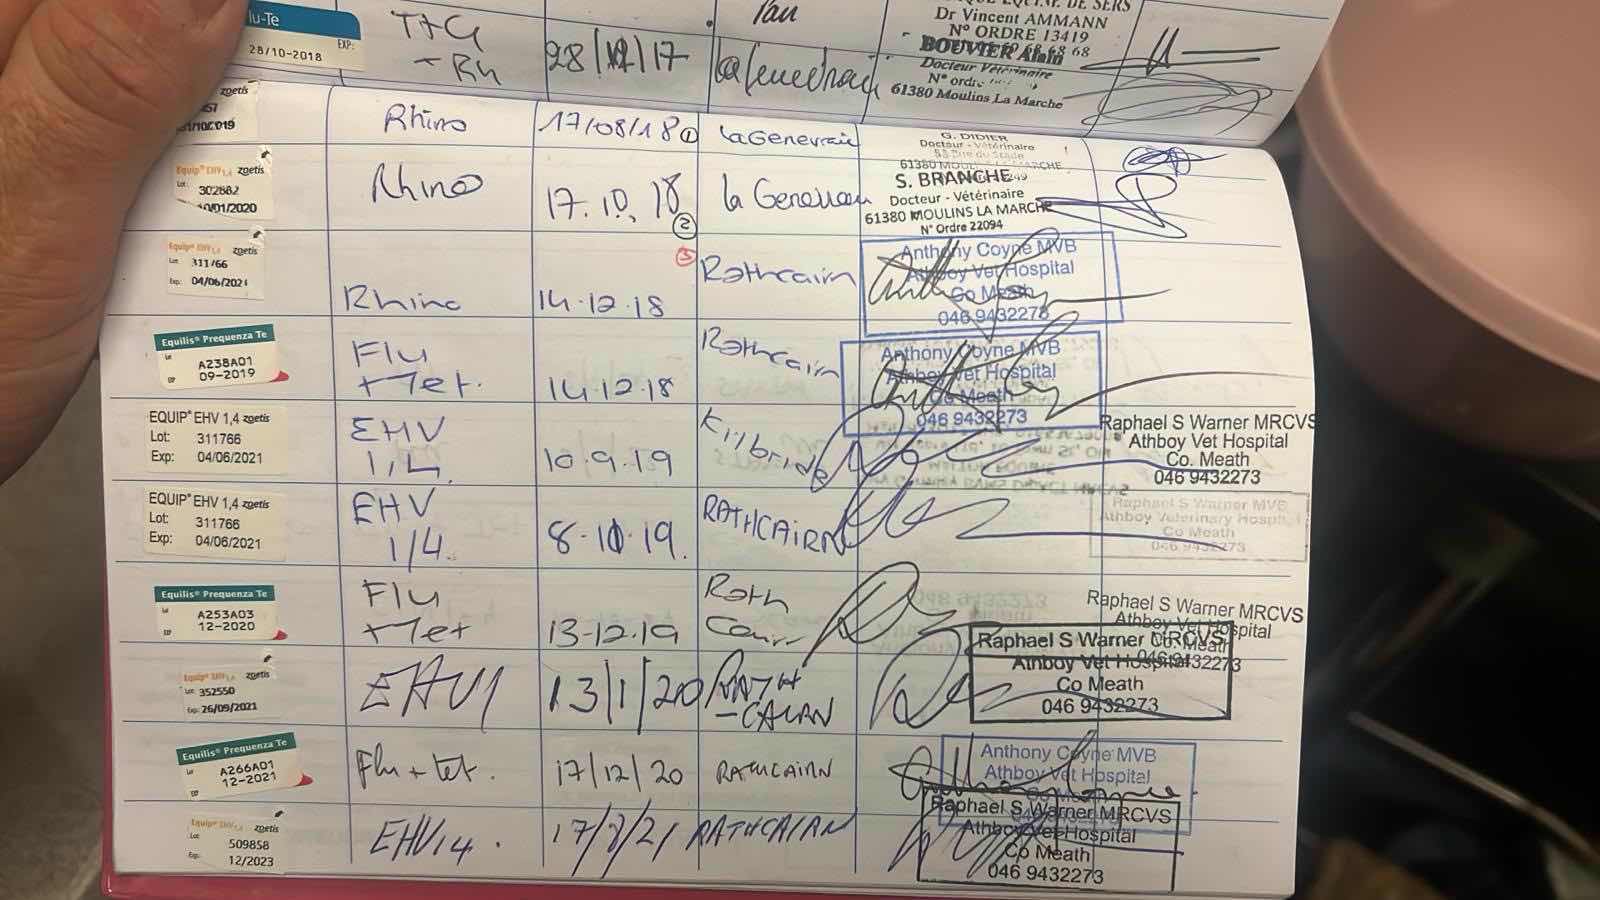 lu-Te
EXP:
28/10-2018
T+G
+ Rh
28/12/17
Pau
La Genevraie
DE SERS
Dr Vincent AMMANN
N° ORDRE 13419
68 68
BOUVIER Alain
Docteur Vétérinaire
N° ordre
61380 Moulins La Marche
zoetis
Rhino
17/08/18 1
La Genevraie
G. DIDIER
Docteur - Vétérinaire
61380 MOULINS LA MARCHE
Equip® EHV1,4 zoetis
Lot: 302882
10/01/2020
Rhino
17.10.18
2
S. BRANCHE
Docteur - Vétérinaire
61380 MOULINS LA MARCHE
N° Ordre 22094
Equip® EHV1,4 zoetis
Lot 311766
Exp: 04/06/2021
Rhino
14.12.18
3
Rathcairn
Anthony Coyne MVB
Athboy Vet Hospital
Co Meath
046 9432273
Equilis® Prequenza Te
Lot A238A01
EXP 09-2019
Flu
+ Tet.
14.12.18
Rathcairn
Anthony Coyne MVB
Athboy Vet Hospital
Co Meath
046 9432273
EQUIP® EHV 1,4 zoetis
Lot: 311766
Exp: 04/06/2021
EHV
1,4.
10.9.19
Kilbride
Raphael S Warner MRCVS
Athboy Vet Hospital
Co. Meath
046 9432273
EQUIP® EHV 1,4 zoetis
Lot: 311766
Exp: 04/06/2021
EHV
1/4.
8.10.19.
RATHCAIRN
Raphael S Warner MVB
Athboy Veterinary Hospital
Co Meath
046 9432273
Equilis® Prequenza Te
Lot A253A03
EXP 12-2020
Flu
+ Tet
13-12.19
Rath
Cairn
Raphael S Warner MRCVS
Athboy Vet Hospital
Co. Meath
046 9432273
Equip® EHV1,4 zoetis
Lot: 352550
Exp: 26/09/2021
EHV1
13/1/20
RATH
-CAIRN
Raphael S Warner MRCVS
Athboy Vet Hospital
Co Meath
046 9432273
Equilis® Prequenza Te
Lot A266A01
EXP 12-2021
Flu + Tet.
17/12/20
RATHCAIRN
Anthony Coyne MVB
Athboy Vet Hospital
Equip® EHV1,4 zoetis
Lot: 509858
Exp: 12/2023
EHV14.
RATHCAIRN
Raphael S Warner MRCVS
Athboy Vet Hospital
Co Meath
046 9432273